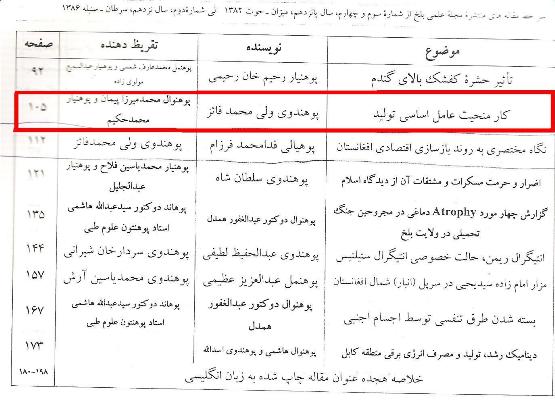 سر خط مقاله های منتشرهٔ مجلهٔ علمی بلخ از شمارهٔ سوم و چهارم، سال پانزدهم، میزان - حوت ۱۳۸۲ الی شمارهٔ دوم، سال نزدهم، سرطان - سنبله ۱۳۸۶
موضوع نویسنده تقریظ دهنده صفحه
تأثیر حشرهٔ کفشک بالای گندم پوهنیار رحیم خان رحیمی پوهنمل محمدعارف شمسی و پوهنیار عبدالسمیع مولوی زاده ۹۲
کار منحیث عامل اساسی تولید پوهندوی ولی محمد فائز پوهنوال محمدمیرزا پیمان و پوهنیار محمدحکیم ۱۰۵
نگاه مختصری به روند بازسازی اقتصادی افغانستان پوهیالی فدامحمد فرزام پوهندوی ولی محمدفائز ۱۱۲
اضرار و حرمت مسکرات و مشتقات آن از دیدگاه اسلام پوهندوی سلطان شاه پوهنیار محمدیاسین فلاح و پوهنیار عبدالجلیل ۱۲۱
گزارش چهار مورد Atrophy دماغی در مجروحین جنگ تحمیلی در ولایت بلخ پوهنوال دوکتور عبدالغفور همدل پوهاند دوکتور سیدعبدالله هاشمی استاد پوهنتون علوم طبی ۱۳۵
انتیگرال ریمن، حالت خصوصی انتیگرال ستیلتیس پوهندوی عبدالحفیظ لطیفی پوهندوی سردارخان شیرانی ۱۴۴
مزار امام زاده سیدیحیی در سرپل (انبار) شمال افغانستان پوهنمل عبدالعزیز عظیمی پوهندوی محمدیاسین آرش ۱۵۷
بسته شدن طرق تنفسی توسط اجسام اجنبی پوهنوال دوکتور عبدالغفور همدل پوهاند دوکتور سیدعبدالله هاشمی استاد پوهنتون علوم طبی ۱۶۷
دینامیک رشد، تولید و مصرف انرژی برقی منطقه کابل پوهنوال هاشمی و پوهندوی اسدالله ۱۷۳
خلاصه هجده عنوان مقاله چاپ شده به زبان انگلیسی ۱۸۰-۱۹۸